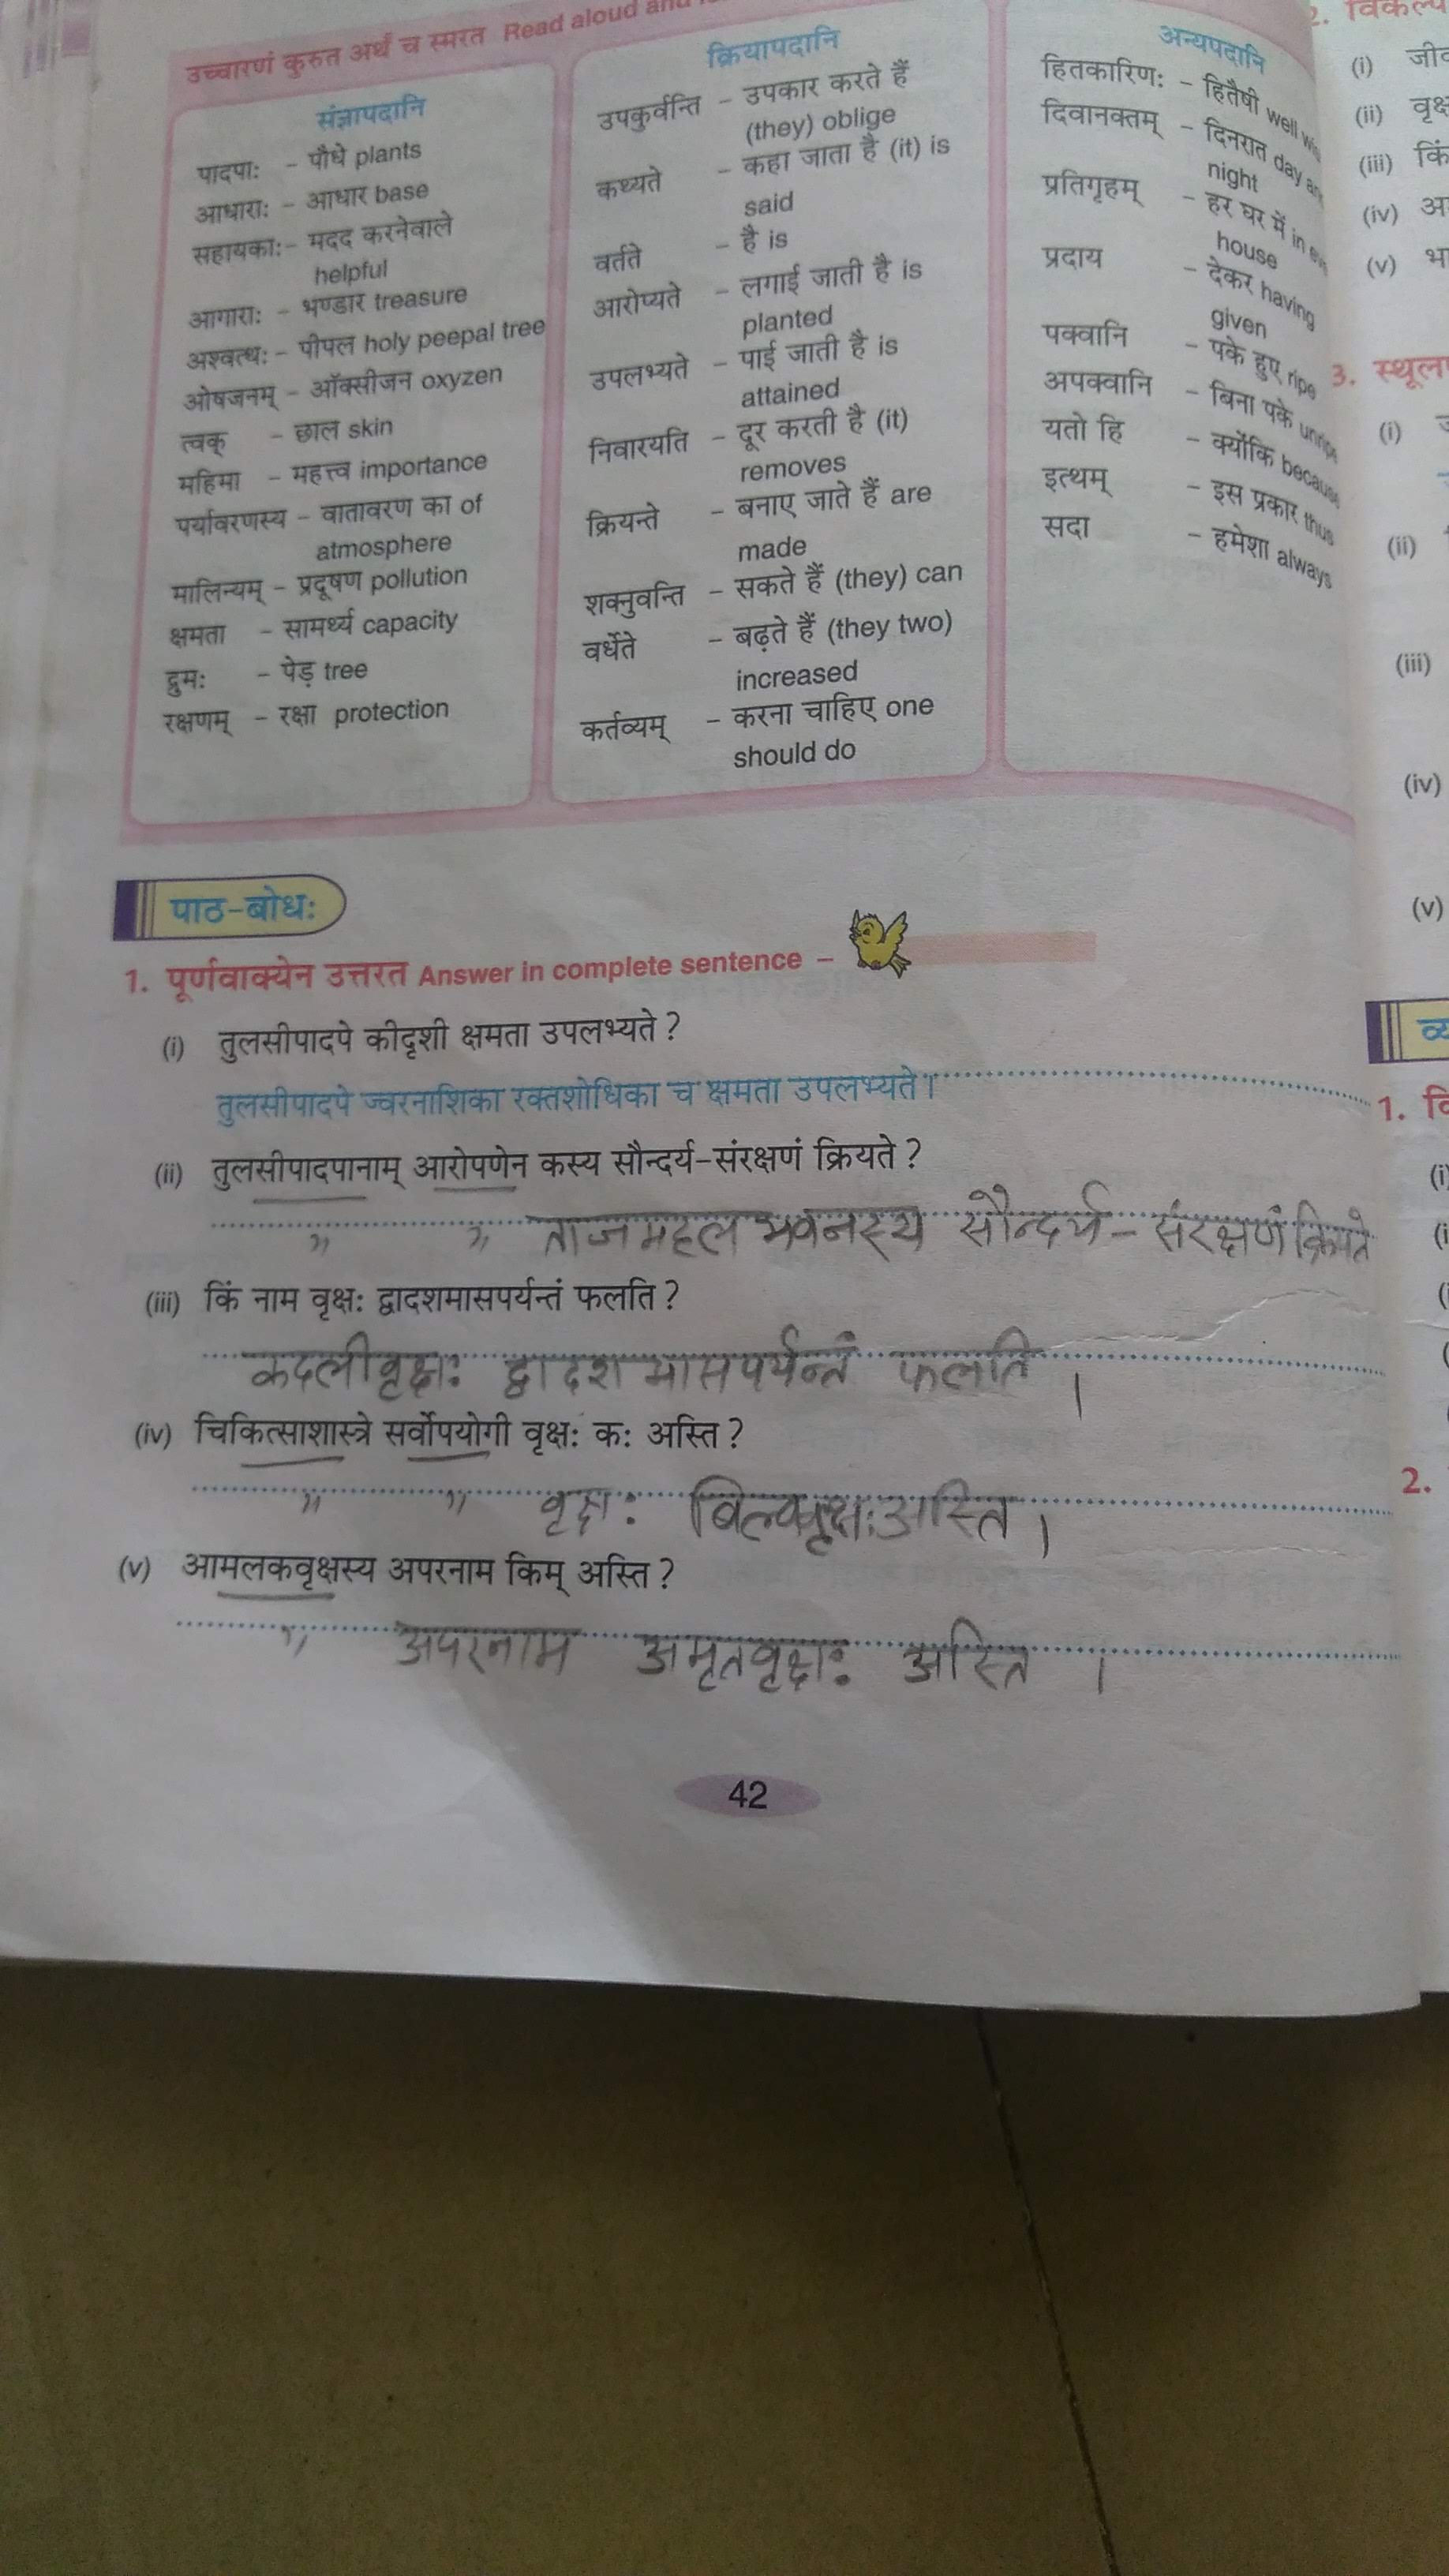 उच्चारणं कुरुत अर्थं च स्मरत Read aloud and
संज्ञापदानि
पादपाः – पौधे plants
आधाराः – आधार base
सहायकाः – मदद करनेवाले
helpful
आगाराः – भण्डार treasure
अश्वत्थः – पीपल holy peepal tree
ओषजनम् – ऑक्सीजन oxyzen
त्वक् – छाल skin
महिमा – महत्त्व importance
पर्यावरणस्य – वातावरण का of
atmosphere
मालिन्यम् – प्रदूषण pollution
क्षमता – सामर्थ्य capacity
द्रुमः – पेड़ tree
रक्षणम् – रक्षा protection
क्रियापदानि
उपकुर्वन्ति – उपकार करते हैं
(they) oblige
कथ्यते – कहा जाता है (it) is
said
वर्तते – है is
आरोप्यते – लगाई जाती है is
planted
उपलभ्यते – पाई जाती है is
attained
निवारयति – दूर करती है (it)
removes
क्रियन्ते – बनाए जाते हैं are
made
शक्नुवन्ति – सकते हैं (they) can
वर्धेते – बढ़ते हैं (they two)
increased
कर्तव्यम् – करना चाहिए one
should do
अन्यपदानि
हितकारिणः – हितैषी well
दिवानक्तम् – दिनरात day
night
प्रतिगृहम् – हर घर में in
house
प्रदाय – देकर having
given
पक्वानि – पके हुए ripe
अपक्वानि – बिना पके unripe
यतो हि – क्योंकि because
इत्थम् – इस प्रकार thus
सदा – हमेशा always
पाठ-बोधः
1. पूर्णवाक्येन उत्तरत Answer in complete sentence –
(i) तुलसीपादपे कीदृशी क्षमता उपलभ्यते ?
तुलसीपादपे ज्वरनाशिका रक्तशोधिका च क्षमता उपलभ्यते ।
(ii) तुलसीपादपानाम् आरोपणेन कस्य सौन्दर्य-संरक्षणं क्रियते ?
" " ताजमहल भवनस्य सौन्दर्य – संरक्षणं क्रियते
(iii) किं नाम वृक्षः द्वादशमासपर्यन्तं फलति ?
कदलीवृक्षः द्वादशमासपर्यन्तं फलति ।
(iv) चिकित्साशास्त्रे सर्वोपयोगी वृक्षः कः अस्ति ?
" " वृक्षः बिल्ववृक्षः अस्ति ।
(v) आमलकवृक्षस्य अपरनाम किम् अस्ति ?
" अपरनाम अमृतवृक्षः अस्ति ।
42
2.
(i)
(ii)
(iii) किं
(iv)
(v)
3.
(i)
(ii)
(iii)
(iv)
(v)
1.
2.